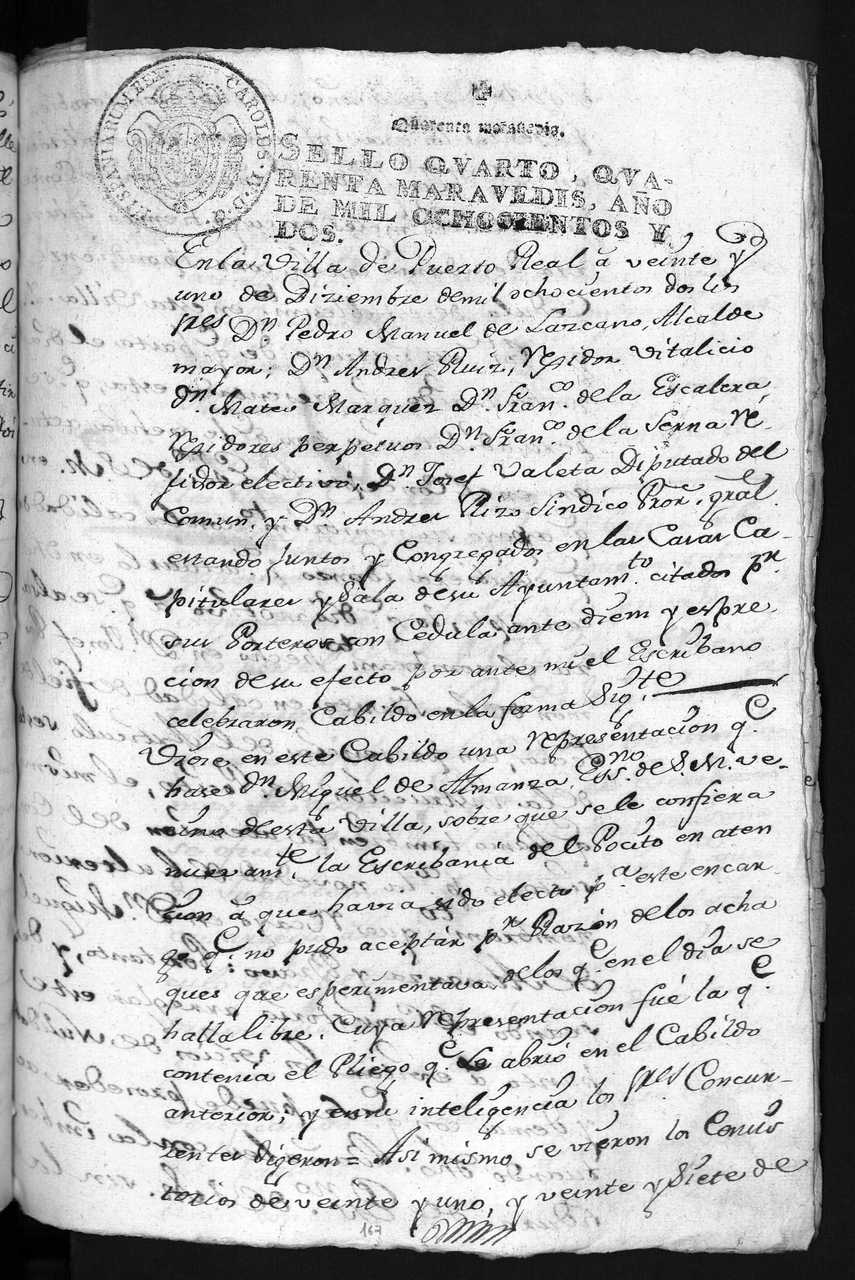 CAROLUS. IV. D. G. HISPANIARUM REX.
Quarenta maravedis.
SELLO QVARTO, QVA-
RENTA MARAVEDIS, AÑO
DE MIL OCHOCIENTOS Y
DOS.
En la Villa de Puerto Real à veinte y
uno de Diziembre de mil ochocientos dos los
sres Dn Pedro Manuel de Lazcano, Alcalde
mayor; Dn Andres Ruiz, Rexidor vitalicio
dn. Mateo Marquez Dn. Franco. de la Escalera
Rexidores perpetuos Dn. Franco. de la Serna Re-
jidor electivo, Dn Josef Valeta Diputado del
Comun, y Dn Andres Rizo Sindico Pror. gral.
estando juntos y Congregados en las Casas Ca
pitulares y Sala de su Ayuntamto. citados pr.
sus Porteros con Cedula ante diem y espre
cion de su efecto por ante mi el Escribano
celebraron Cabildo en la forma Sigte
Viose en este Cabildo una Representacion qe.
hase dn. Miguel de Almanza Essno. de S. M. ve-
cino de esta Villa, sobre que se le confiera
nuevamte. la Escribanía del Pocito en aten
cion à que havia sido electo pa. este encar-
go qe. no pudo aceptar pr. Razón de los acha
ques que esperimentava, de los qe. en el dia se
halla libre. Cuya Representacion fué la qe.
contenia el Pliego qe. se abrió en el Cabildo
anterior; y en su inteligencia los sres Concur-
rentes digeron= Asi mismo se vieron los
torios de veinte y uno, y veinte y siete de
167